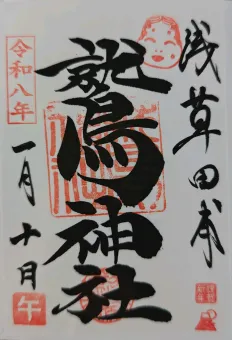 浅草田甫
鷲鳥神社
令和八年
一月十日
午